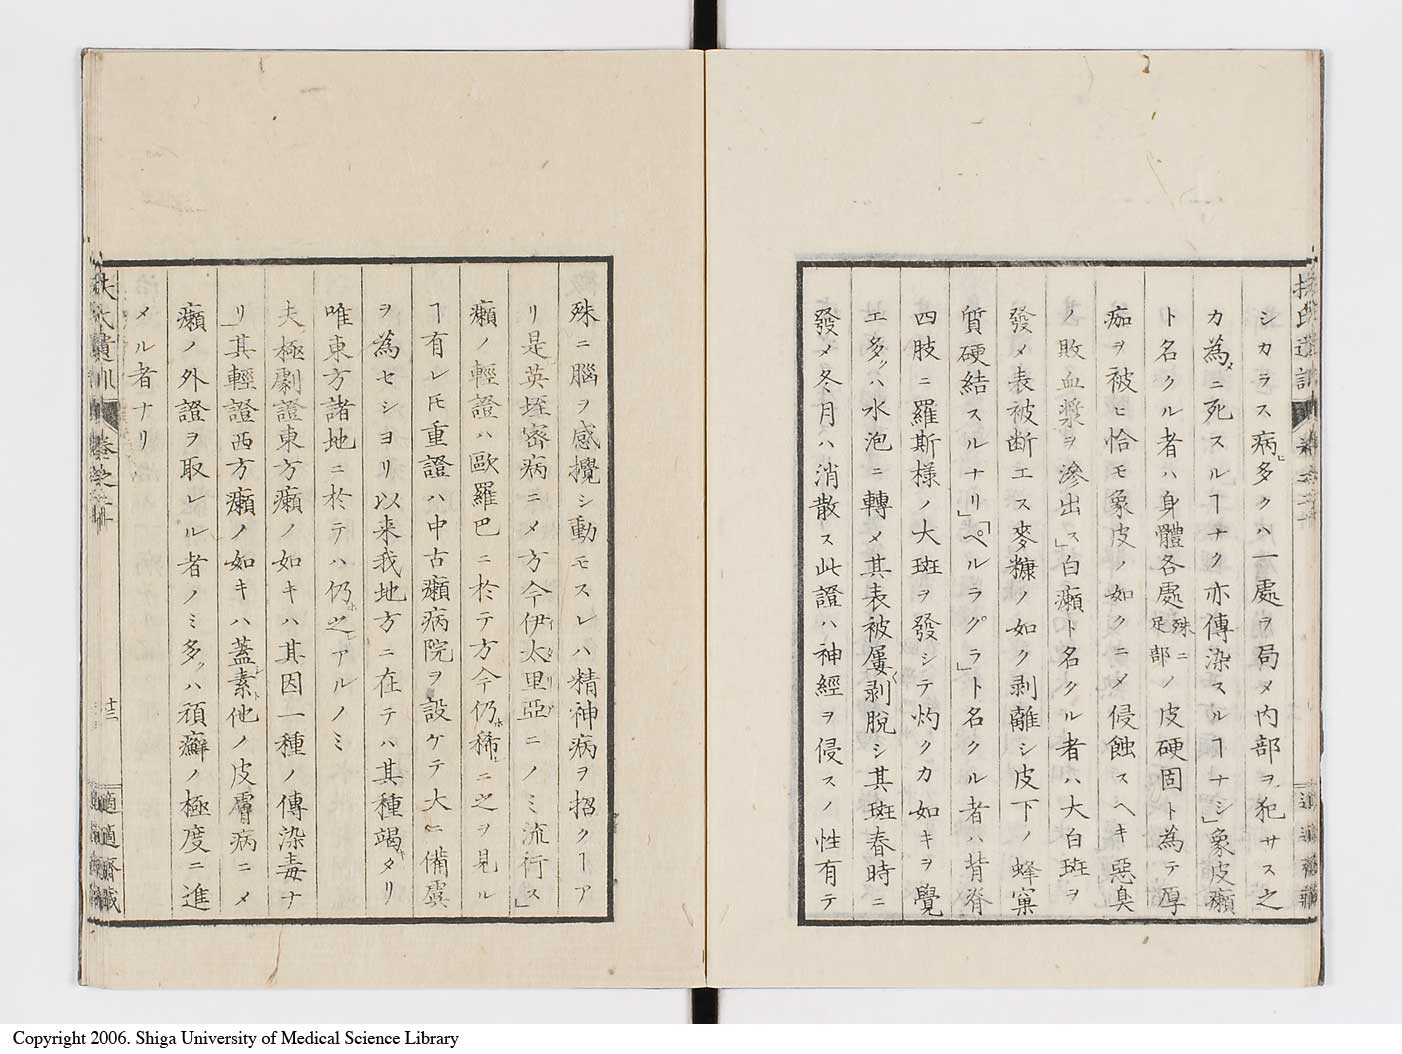 シカラス病多クハ一處ヲ局メ内部ヲ犯サス之
カ為ニ死スルヿナク亦傳染スルヿナシ」象皮癩
ト名クル者ハ身體各處殊ニ足部ノ皮硬固ト為テ厚
痂ヲ被ヒ恰モ象皮ノ如クニメ侵蝕スヘキ惡臭
ノ敗血漿ヲ滲出ス」白癩ト名クル者ハ大白斑ヲ
發メ表被断エス麥糠ノ如ク剥離シ皮下ノ蜂窠
質硬結スルナリ」「ペルラグラ」ト名クル者ハ背脊
四肢ニ羅斯様ノ大斑ヲ發シテ灼クカ如キヲ覺
エ多クハ水泡ニ轉メ其表被屢剥脱シ其斑春時ニ
發メ冬月ハ消散ス此證ハ神經ヲ侵スノ性有テ
殊ニ腦ヲ感攪シ動モスレハ精神病ヲ招クヿア
リ是英埊密病ニメ方今伊太里亞ニノミ流行ス」
癩ノ輕證ハ歐羅巴ニ於テ方今仍稀ニ之ヲ見ル
ヿ有レ𪜈重證ハ中古癩病院ヲ設ケテ大ニ備虞
ヲ為セシヨリ以来我地方ニ在テハ其種竭タリ
唯東方諸地ニ於テハ仍之アルノミ
夫極劇證東方癩ノ如キハ其因一種ノ傳染毒ナ
リ其輕證西方癩ノ如キハ蓋素他ノ皮膚病ニメ
癩ノ外證ヲ取レル者ノミ多クハ頑癬ノ極度ニ進
メル者ナリ
扶氏遺訓
卷之
廿二
適適齋藏
Copyright 2006. Shiga University of Medical Science Library